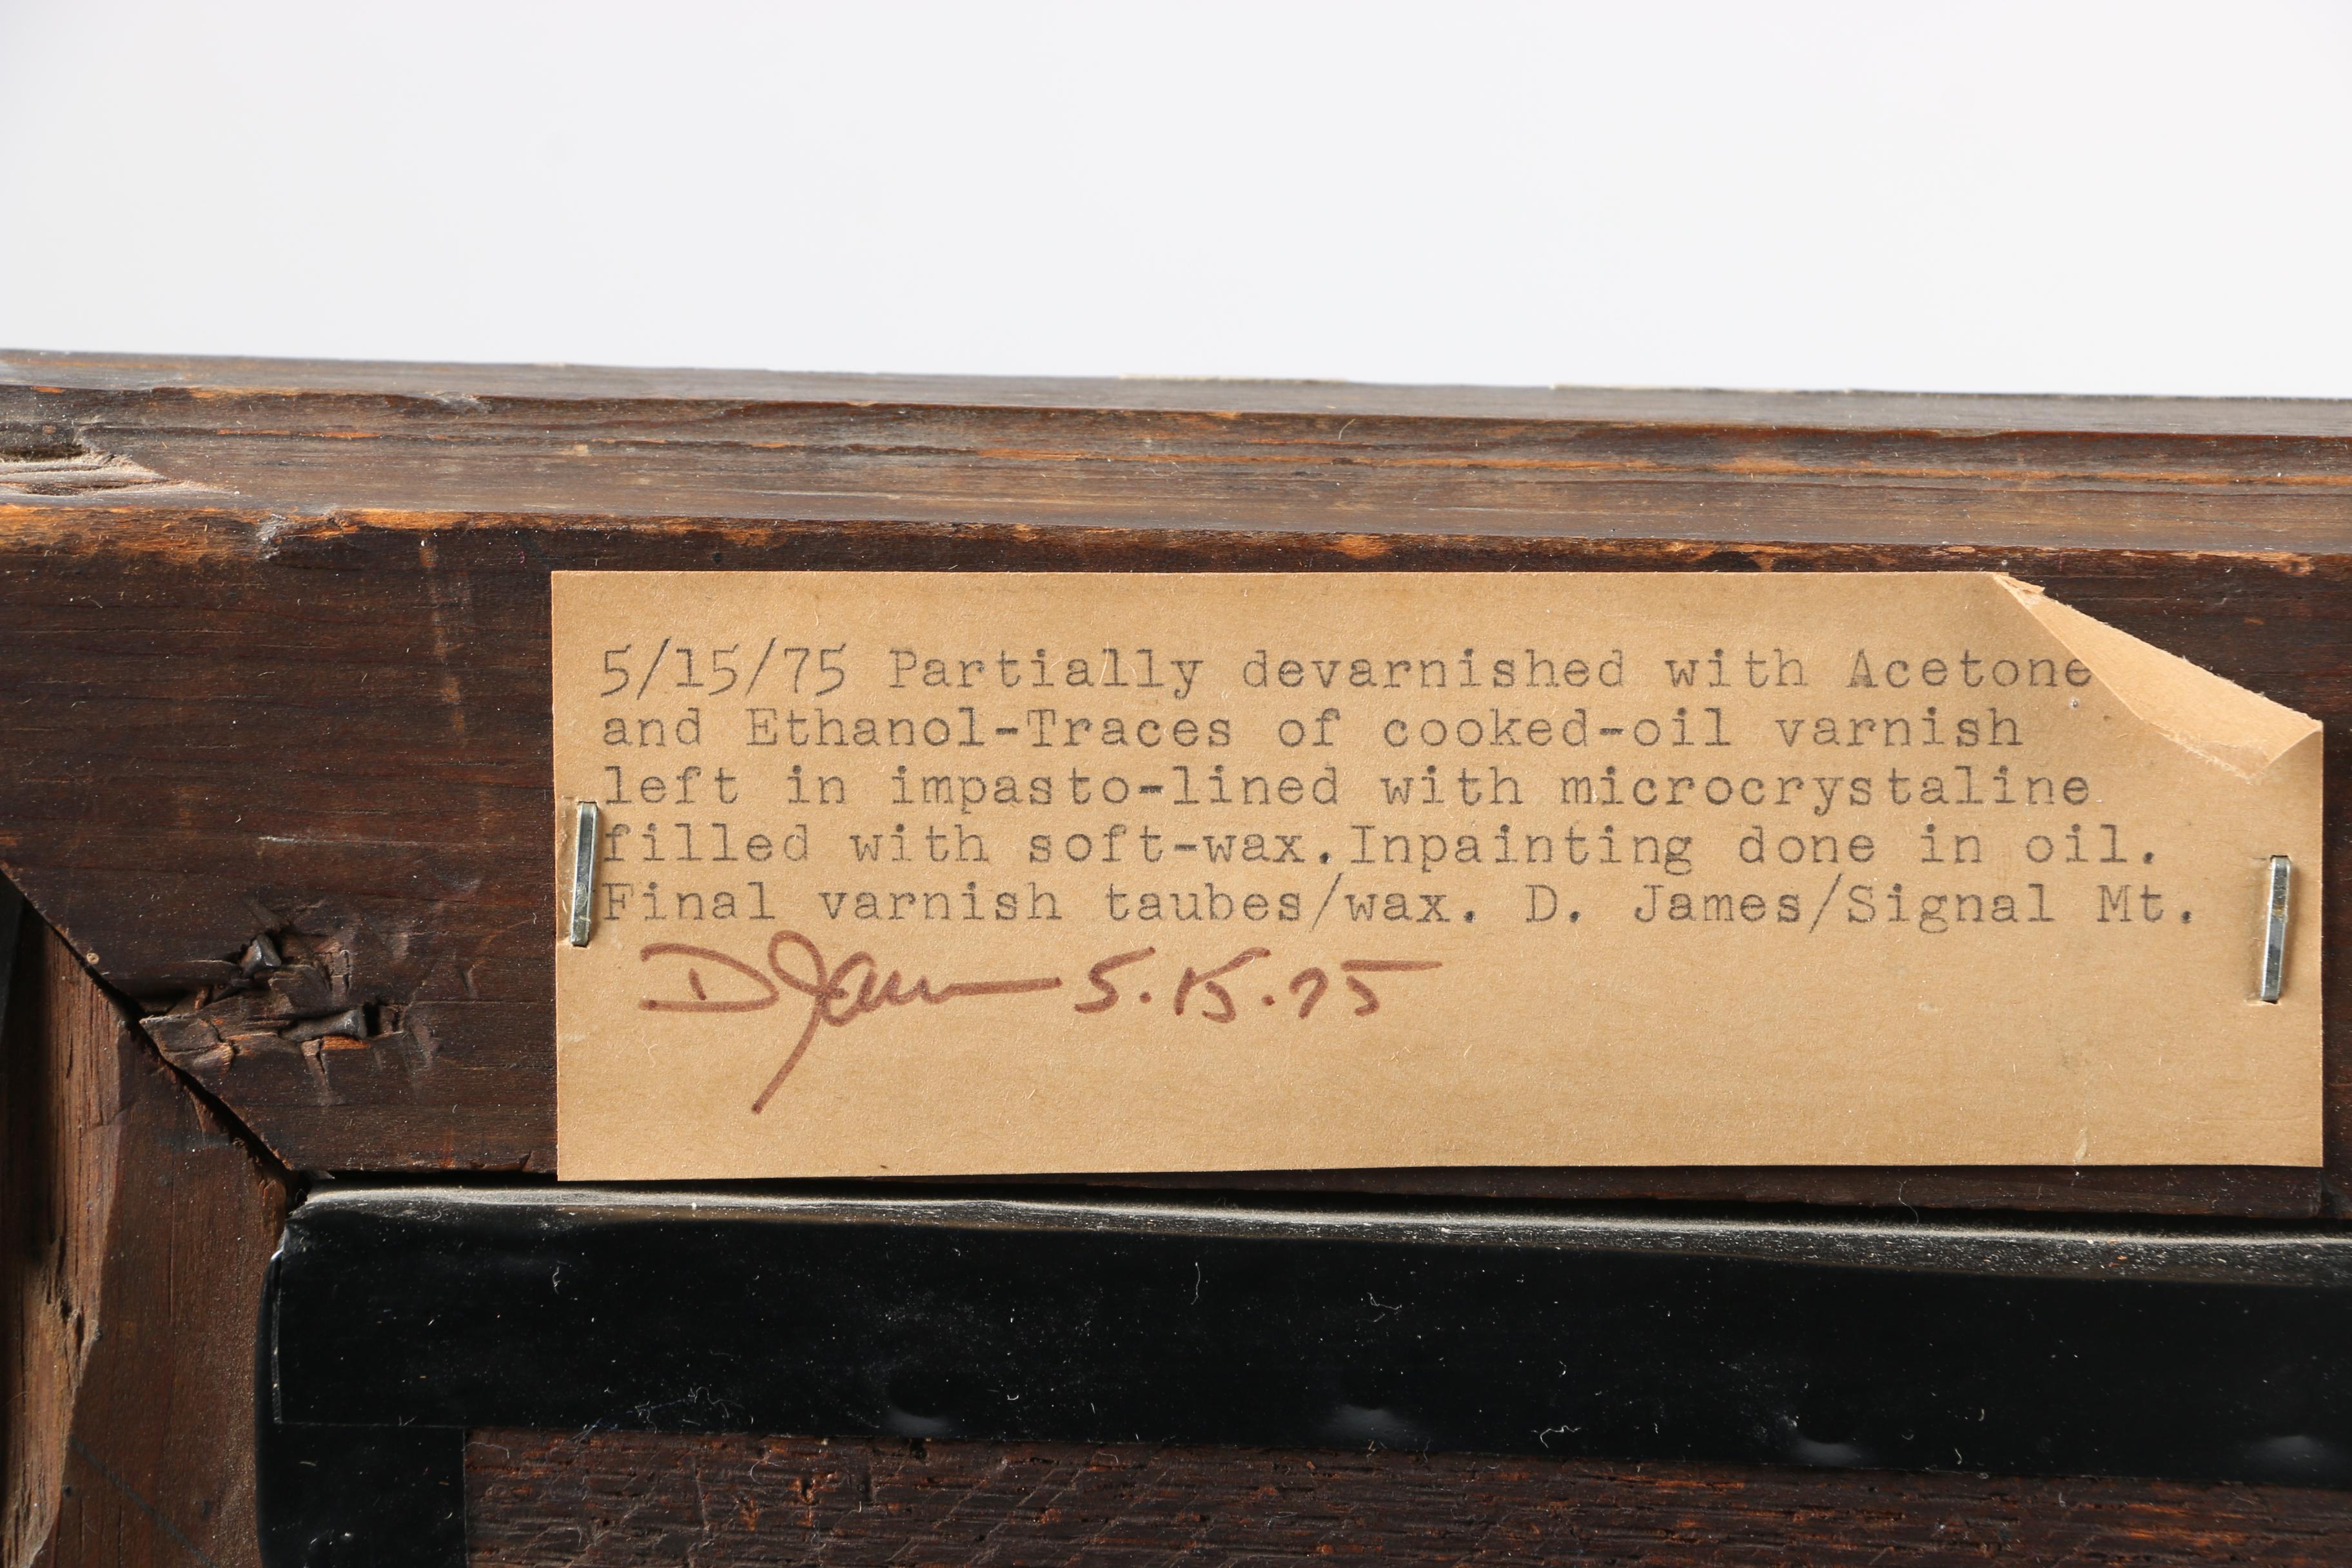 5/15/75 Partially devarnished with Acetone
and Ethanol-Traces of cooked-oil varnish
left in impasto-lined with microcrystaline
filled with soft-wax.Inpainting done in oil.
Final varnish taubes/wax. D. James/Signal Mt.
DJames 5.15.75